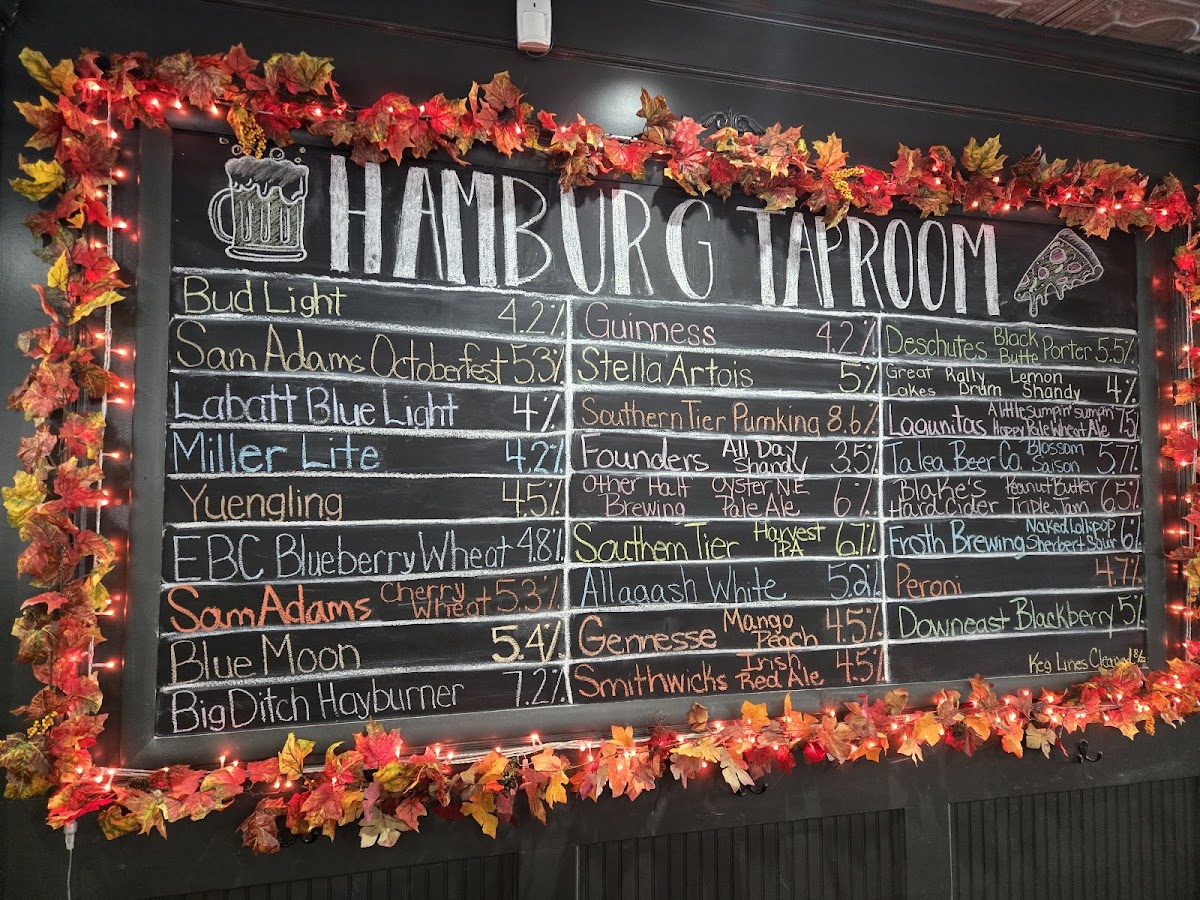 HAMBURG TAPROOM
Bud Light 4.2%
Sam Adams Octoberfest 5.3%
Labatt Blue Light 4%
Miller Lite 4.2%
Yuengling 4.5%
EBC Blueberry Wheat 4.8%
Sam Adams Cherry Wheat 5.3%
Blue Moon 5.4%
Big Ditch Hayburner 7.2%
Guinness 4.2%
Stella Artois 5%
Southern Tier Pumking 8.6%
Founders All Day Shandy 3.5%
Other Half Brewing Oyster NE Pale Ale 6%
Southern Tier Harvest IPA 6.7%
Allagash White 5.2%
Gennesse Mango Peach 4.5%
Smithwicks Irish Red Ale 4.5%
Deschutes Black Butte Porter 5.5%
Great Lakes Rally Drum Lemon Shandy 4%
Lagunitas A little sumpin' sumpin' Hoppy Pale Wheat Ale 7.5%
Talea Beer Co. Blossom Saison 5.7%
Blake's Hard Cider Peanut Butter Triple Jam 6.5%
Froth Brewing Naked Lollipop Sherbert Sour 6%
Peroni 4.7%
Downeast Blackberry 5%
Keg Lines Cleaned